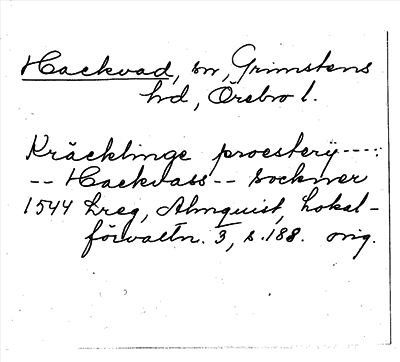 Hackvad, sn, Grimstens
hd, Örebro l.
Kräcklinge proesterij----:
-- Hackvass -- sockner
1544 Lreg, Almquist, Lokal-
förvaltn. 3, s. 188. orig.